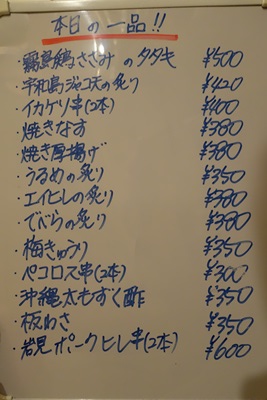 本日の一品!!
・霧島鶏ささみのタタキ ¥500
・宇和島ジャコ天の炙り ¥420
・イカゲソ串(2本) ¥400
・焼きなす ¥380
・焼き厚揚げ ¥380
・うるめの炙り ¥350
・エイヒレの炙り ¥380
・でべらの炙り ¥380
・梅きゅうり ¥350
・ペコロス串(2本) ¥300
・沖縄太もずく酢 ¥350
・板わさ ¥350
・岩見ポークヒレ串(2本) ¥600